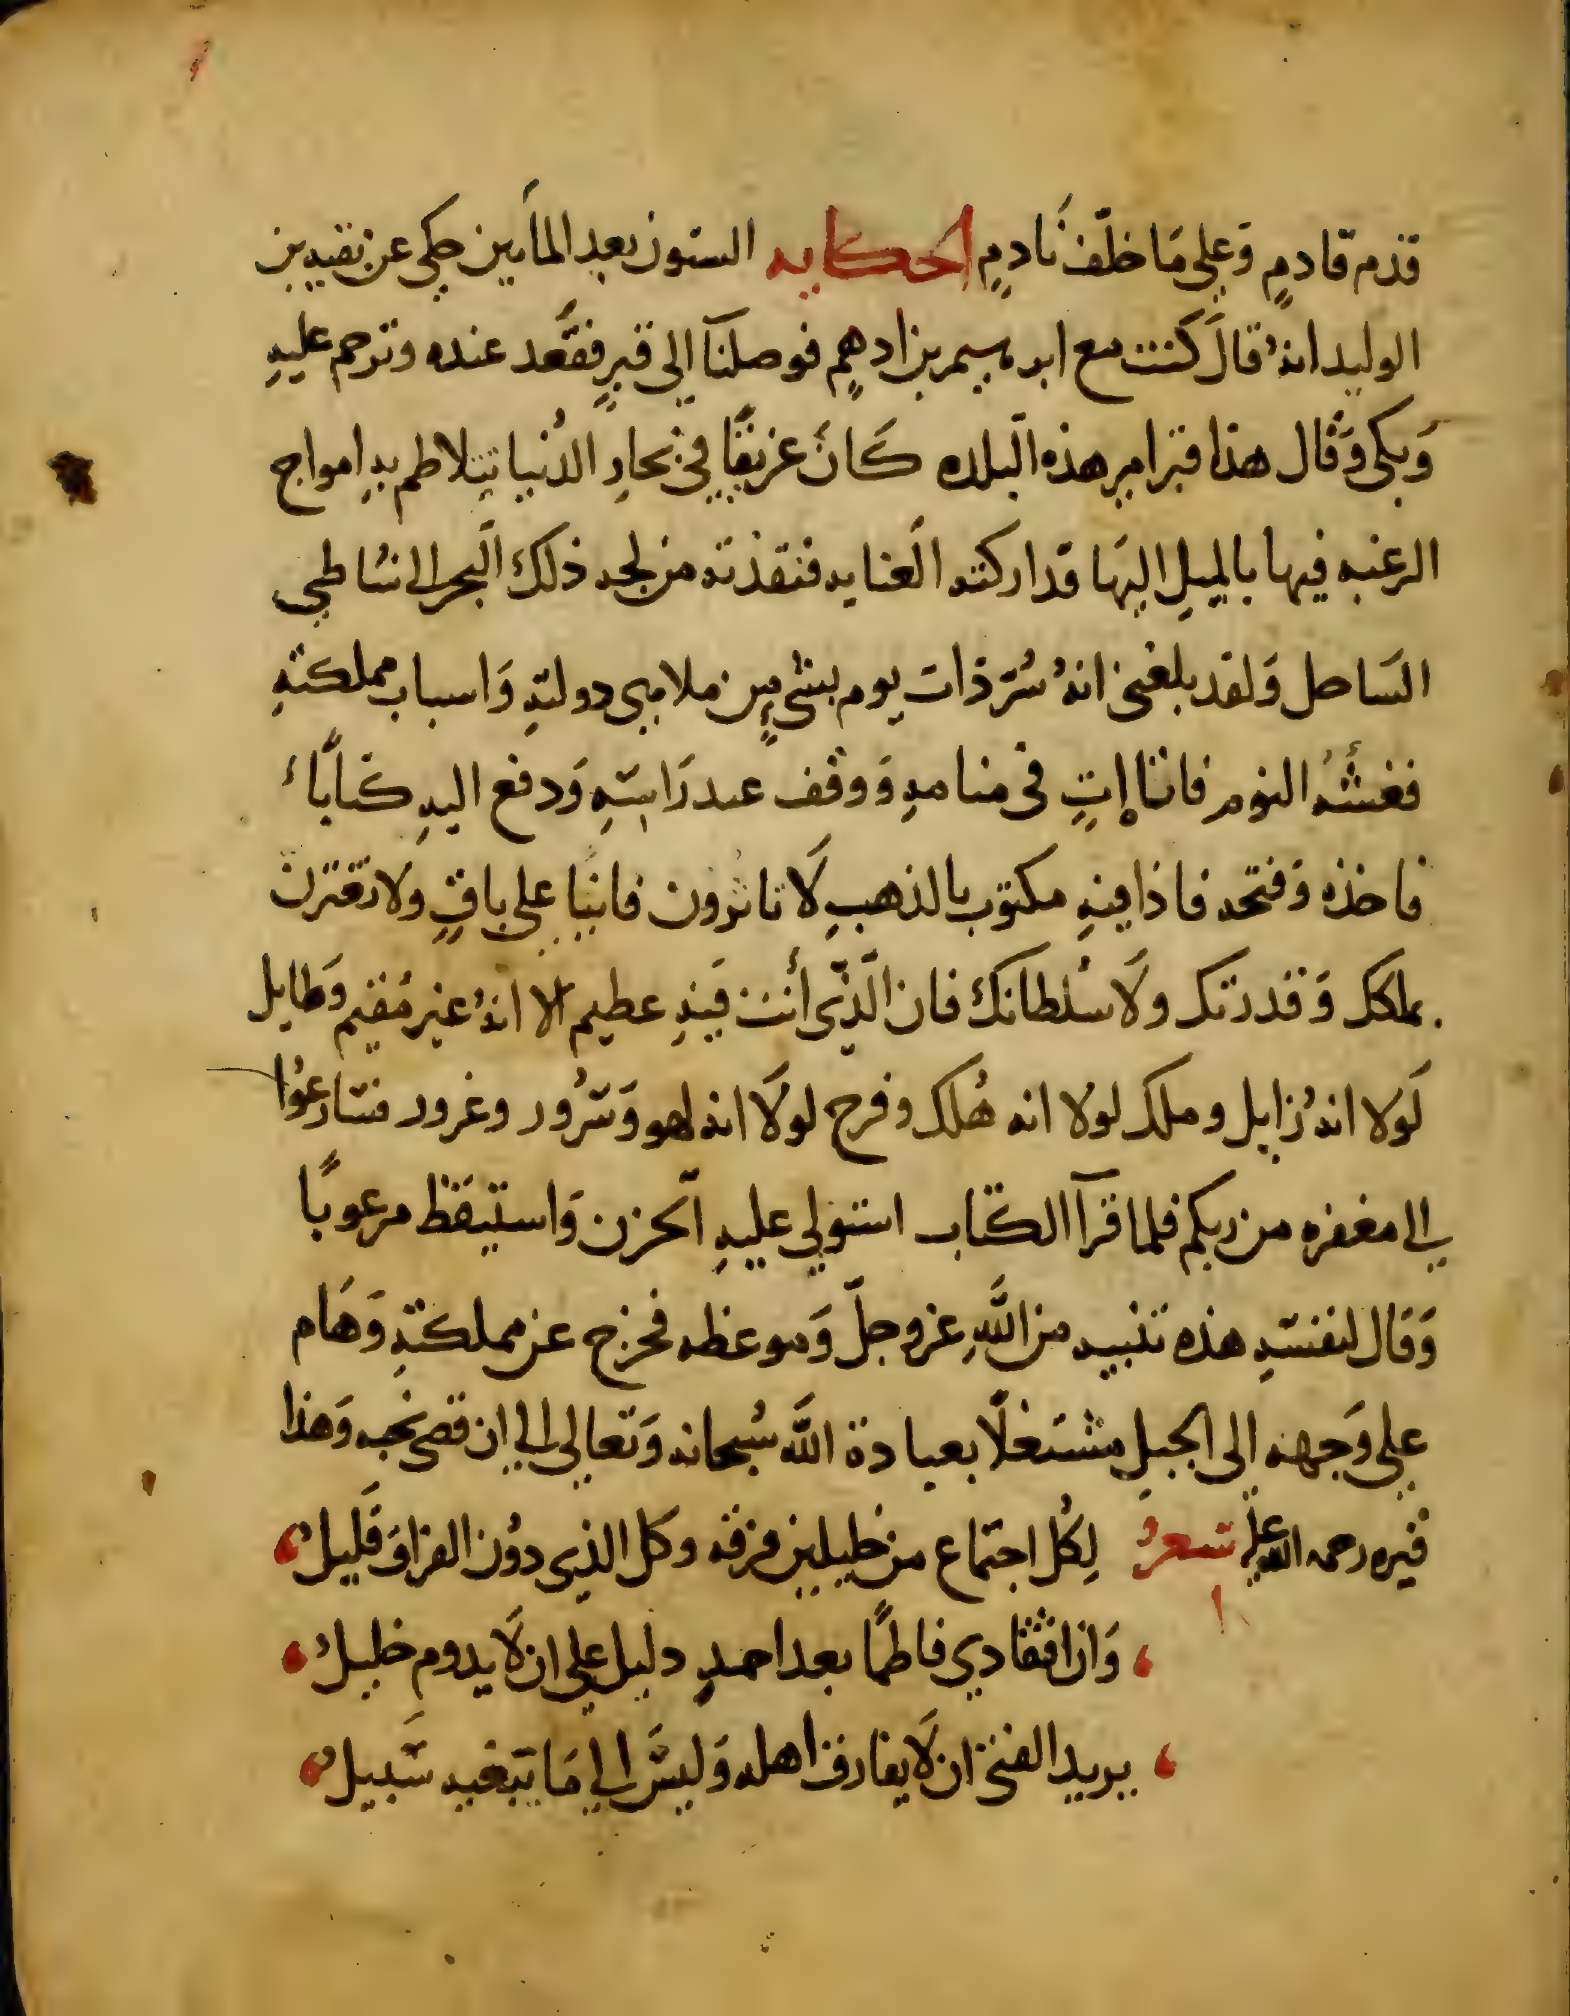 قدم قادمٍ وَعلي مَا خلّف نَادمٍ الحكايه الستون بعد المأيين حكي عن بقيه بن
الوليد انهُ قالَ كنت مع ابرهيم بن ادهم فوصلنَا الي قبرٍ فقَعد عنده وترحم عليهِ
وَبكي وَقال هذا قبر امير هذه البلده كَانَ غريقًا في بحارِ الدُنيا تتلاطم بهِ امواج
الرغبه فيها بالميلِ اليهَا فتداركته العنايه فنقذته من لجه ذلك البحر الي شاطي
السَاحل وَلقد بلغني انهُ سُرّ ذات يوم بشيٍ من ملاهي دولتهِ وَاسباب مملكتهِ
فغشيهُ النوم فاتاه اتٍ في منامهِ وَوقف عند رَاسهِ وَدفع اليهِ كتابًا
فاخذه وَفتحه فاذا فيهِ مكتوب بالذهبِ لَا تاثرون فانيًا علي باقٍ ولا تغترن
بملكك وَقدرتك ولَا سُلطانك فان الذّي أنت فيهِ عظيم الا انهُ غير مُقيم وَطايل
لَولا انهُ زايل وملك لولا انه هُلك وفرح لولَا انه لهو وَسُرور وغرور فسَارعُوا
الي مغفره من ربكم فلما قرآ الكتاب استولي عليهِ الحزن وَاستيقظ مرعوبًا
وَقال لنفسهِ هذه تنبيه من اللَّهِ عز وجلّ وَموعظه فخرج عن مملكتهِ وَهَام
علي وَجهه الي الجبلِ مشتغلًا بعبادة اللَّه سُبحانه وَتعالي الي ان قضي نحبه وَهذا
قبره رحمه الله عليه شعرُ لِكُل اجتماع من خليلين فرقه وكل الذي دوُن الفراق قَليلُ
وَان افتقادي فاطمًا بعد احمدٍ دليل علي ان لَا يدوم خليلُ
يريد الفتي ان لَا يفارق اهله وَليسَ الي مَا يبتغيه سَبيلُ